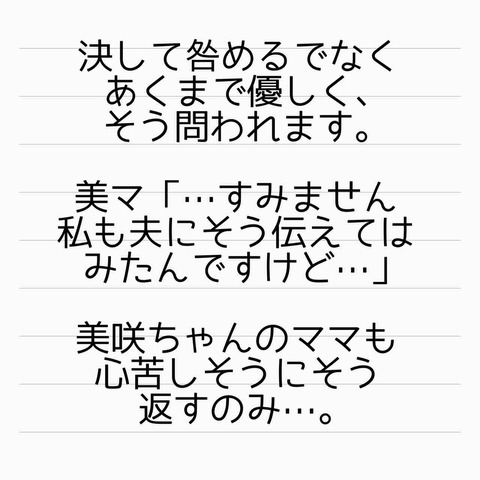 決して咎めるでなく
あくまで優しく、
そう問われます。
美マ「…すみません
私も夫にそう伝えては
みたんですけど…」
美咲ちゃんのママも
心苦しそうにそう
返すのみ…。